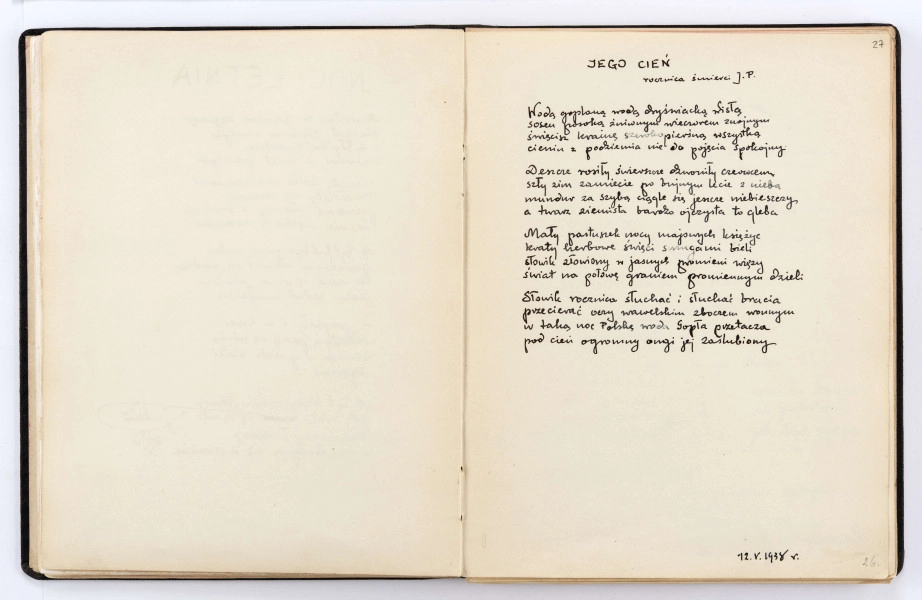 27
JEGO CIEŃ
rocznica śmierci J. P.
Wodą goplaną wodą dryświacką Wisłą
sosen posoką żniwnym wieczorem znojnym
święcisz krainę szerokopierśną wszystką
cieniu z podziemia nie do pojęcia spokojny
Deszcze rosiły świerszcze dzwoniły czerwcem
szły zim zamiecie po bujnym lecie z nieba
mundur za szybą ciągle się jeszcze niebieszczy
a twarz ziemista bardzo ojczysta to gleba
Mały pastuszek nocy majowych księżyc
kraty herbowe święci smugami bieli
słowik złowiony w jasnych promieni więzy
świat na połowę graniem promiennym dzieli
Słowik rocznica słuchać i słuchać bracia
przecierać oczy wawelskim zboczem wonnym
w taką noc Polskę woda Gopła przetacza
pod cień ogromny ongi jej zaślubiony
12. V. 1938 r.
26.